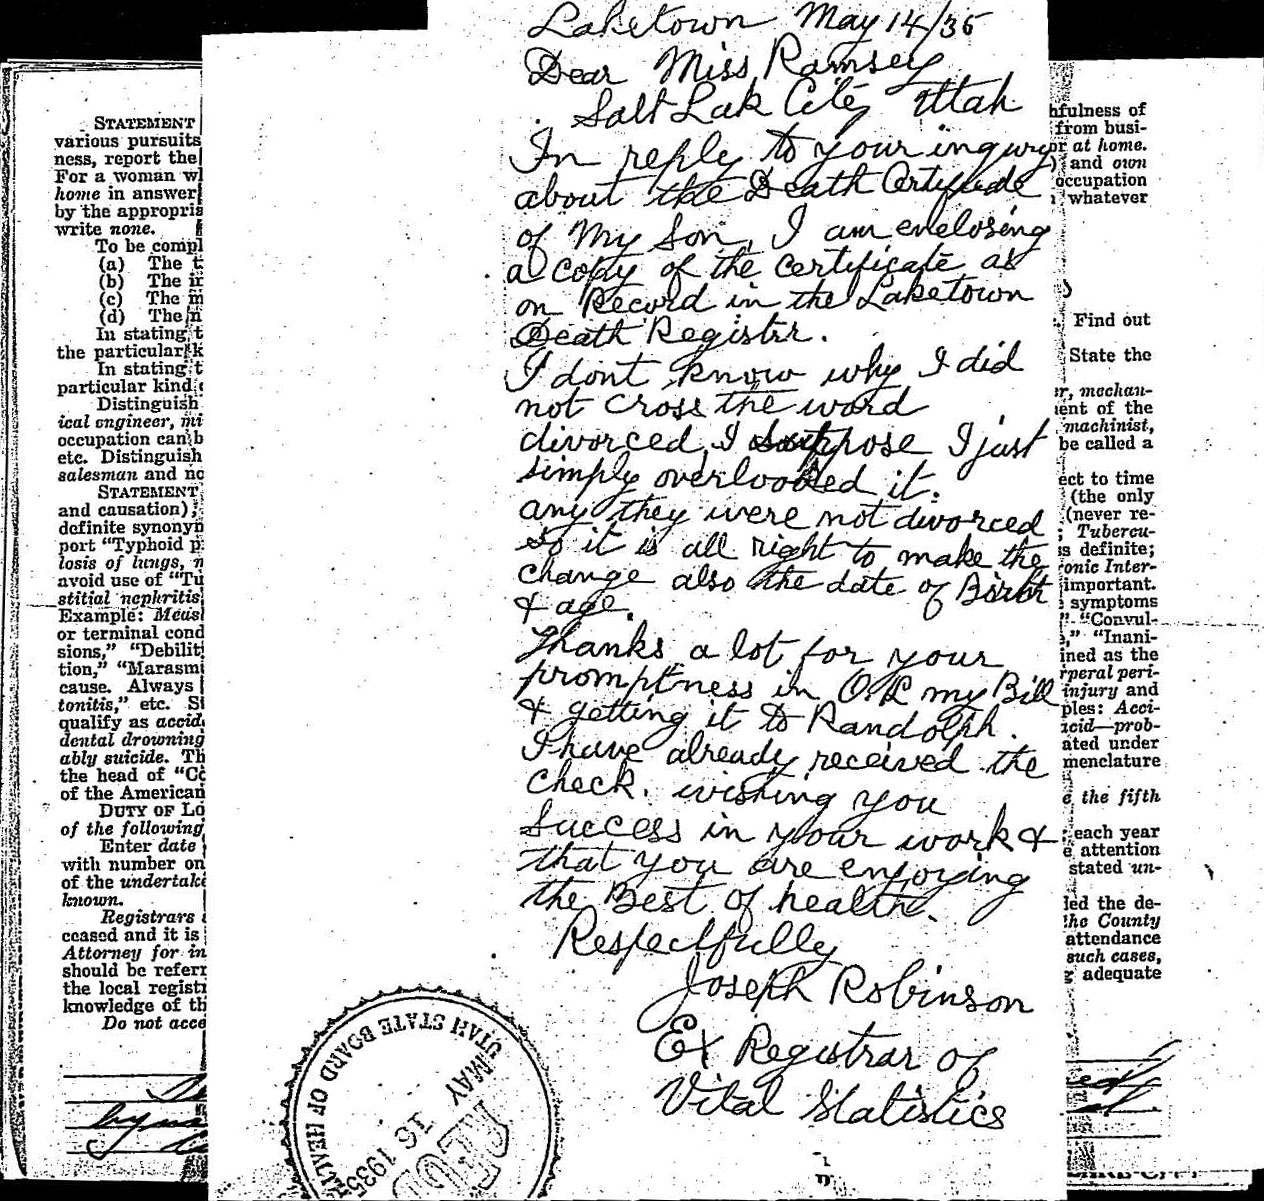 Laketown May 14/35
Dear Miss Ramsey
Salt Lak City Uttah
In reply to your inqury
about the Death Certificate
of My Son, I am enclosing
a copy of the certificate as
on Record in the Laketown
Death Registrr.
I dont know why I did
not cross the word
divorced, I suppose I just
simply overlooked it.
any they were not divorced
so it is all right to make the
change also the date of Birth
& age.
Thanks a lot for your
promptness in O K my Bill
& getting it to Randolph.
I have already received the
check. wishing you
success in your work &
that you are enjoying
the Best of health.
Respectfully
Joseph Robinson
Ex Registrar of
Vital Statistics
UTAH STATE BOARD OF HEALTH
MAY
16 1935
STATEMENT
various pursuits
ness, report the
For a woman w
home in answer
by the appropris
write none.
To be compl
(a) The t
(b) The in
(c) The m
(d) The n
In stating t
the particular k
In stating t
particular kind
Distinguish
ical engineer, mi
occupation can b
etc. Distinguish
salesman and no
STATEMENT
and causation),
definite synonyn
port "Typhoid p
losis of lungs, n
avoid use of "Tu
stitial nephritis
Example: Measl
or terminal cond
sions," "Debilit
tion," "Marasmi
cause. Always
tonitis," etc. St
qualify as accid
dental drowning
ably suicide. Th
the head of "Co
of the American
DUTY OF LO
of the following
Enter date
with number on
of the undertake
known.
Registrars
ceased and it is
Attorney for in
should be referr
the local registr
knowledge of th
Do not acce
hfulness of
from busi-
or at home.
) and own
occupation
whatever
Find out
State the
er, mechan-
ent of the
machinist,
be called a
ect to time
(the only
(never re-
; Tubercu-
is definite;
onic Inter-
important.
symptoms
" "Convul-
," "Inani-
ined as the
rperal peri-
injury and
ples: Acci-
acid—prob-
ated under
menclature
e the fifth
each year
e attention
stated un-
led the de-
the County
attendance
such cases,
adequate